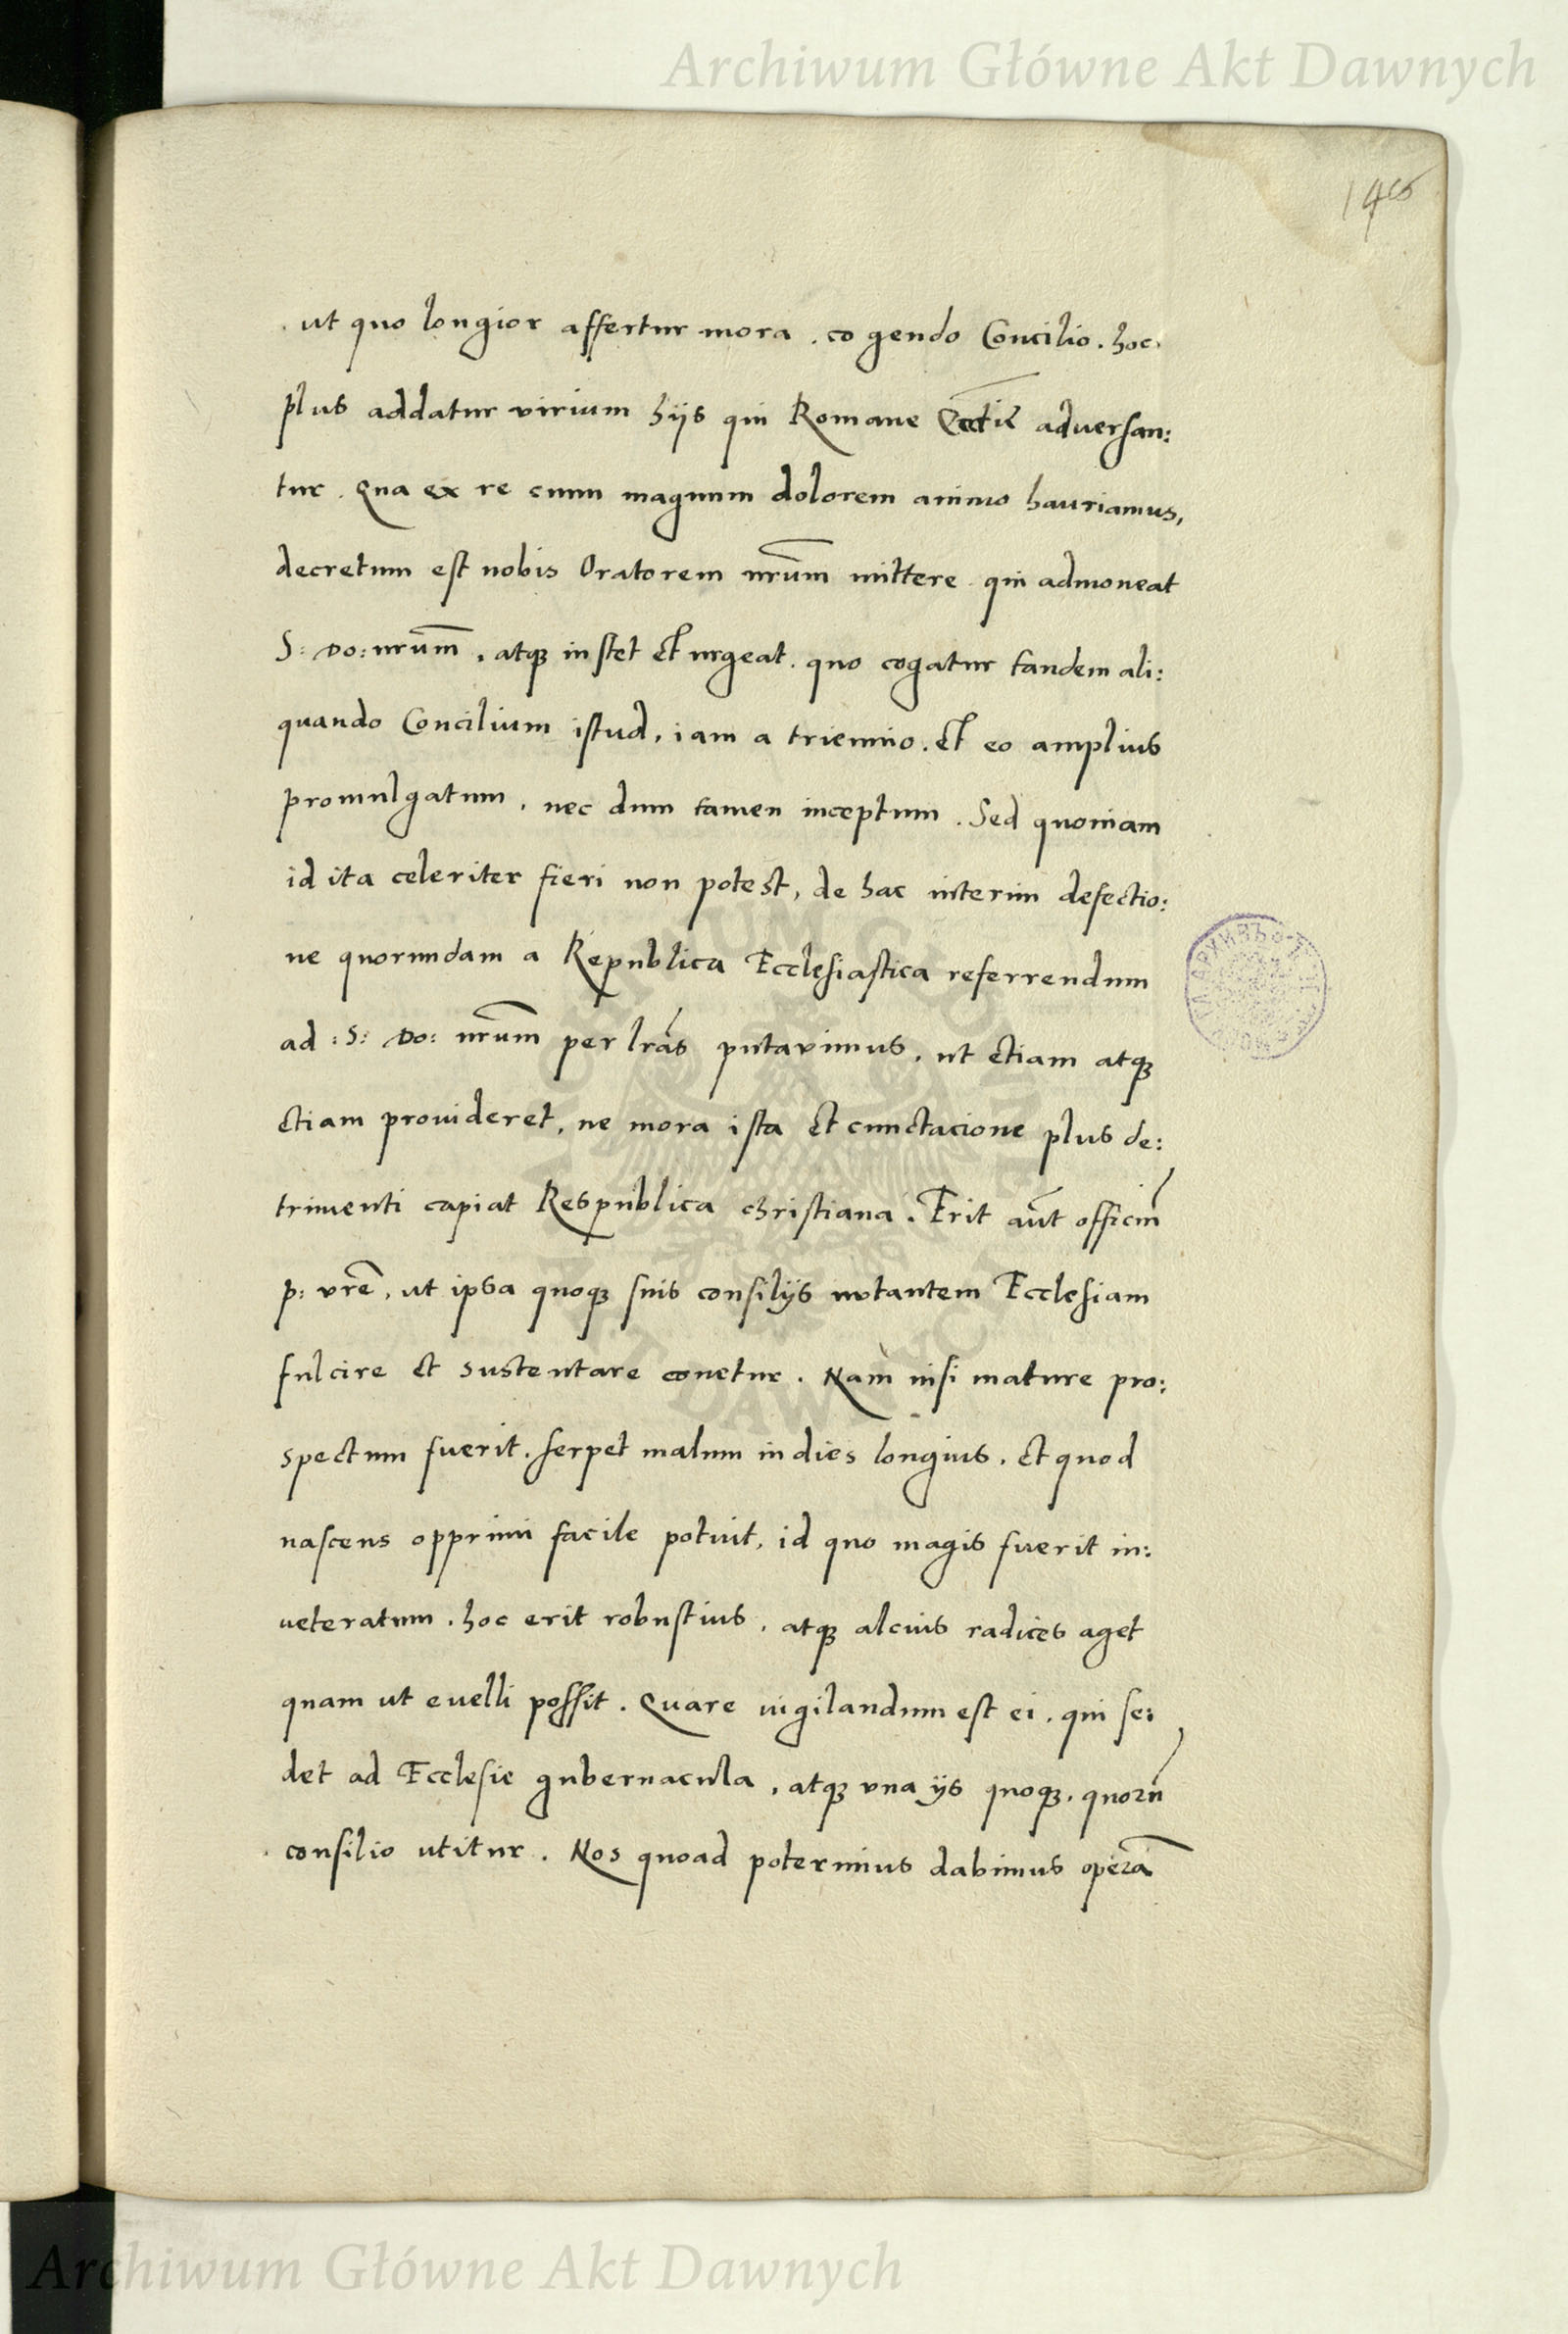 Archiwum Główne Akt Dawnych
ut quo longior affertur mora . cogendo Concilio . hoc
plus addatur virium hijs qui Romane Eccłie adversan:
tur . Qua ex re cum magnum dolorem animo hauriamus,
decretum est nobis Oratorem nrum̃ mittere qui admoneat
S: Do: nrum̃ , atqꝫ instet et urgeat . quo cogatur tandem ali:
quando Concilium istud , iam a triennio . et eo amplius
promulgatum , nec dum tamen inceptum . Sed quoniam
id ita celeriter fieri non potest , de hac interim defectio:
ne quorundam a Republica Ecclesiastica referrendum
ad : S: Do: nrum̃ per lrás putavimus , ut etiam atqꝫ
etiam provideret , ne mora ista et cunctacione plus de:
trimenti capiat Respublica christiana . Erit aũt officiũ
p: vrẽ , ut ipsa quoqꝫ suis consilijs nutantem Ecclesiam
fulcire et sustentare conetur . Nam nisi mature pro:
spectum fuerit . serpet malum in dies longius . et quod
nascens opprimi facile potuit , id quo magis fuerit in:
veteratum . hoc erit robustius , atqꝫ alcius radices aget
quam ut evelli possit . Quare vigilandum est ei . qui se:
det ad Ecclesie gubernacula , atqꝫ vna ijs quoqꝫ . quorũ
consilio utitur . Nos quoad poterimus dabimus operã
Archiwum Główne Akt Dawnych